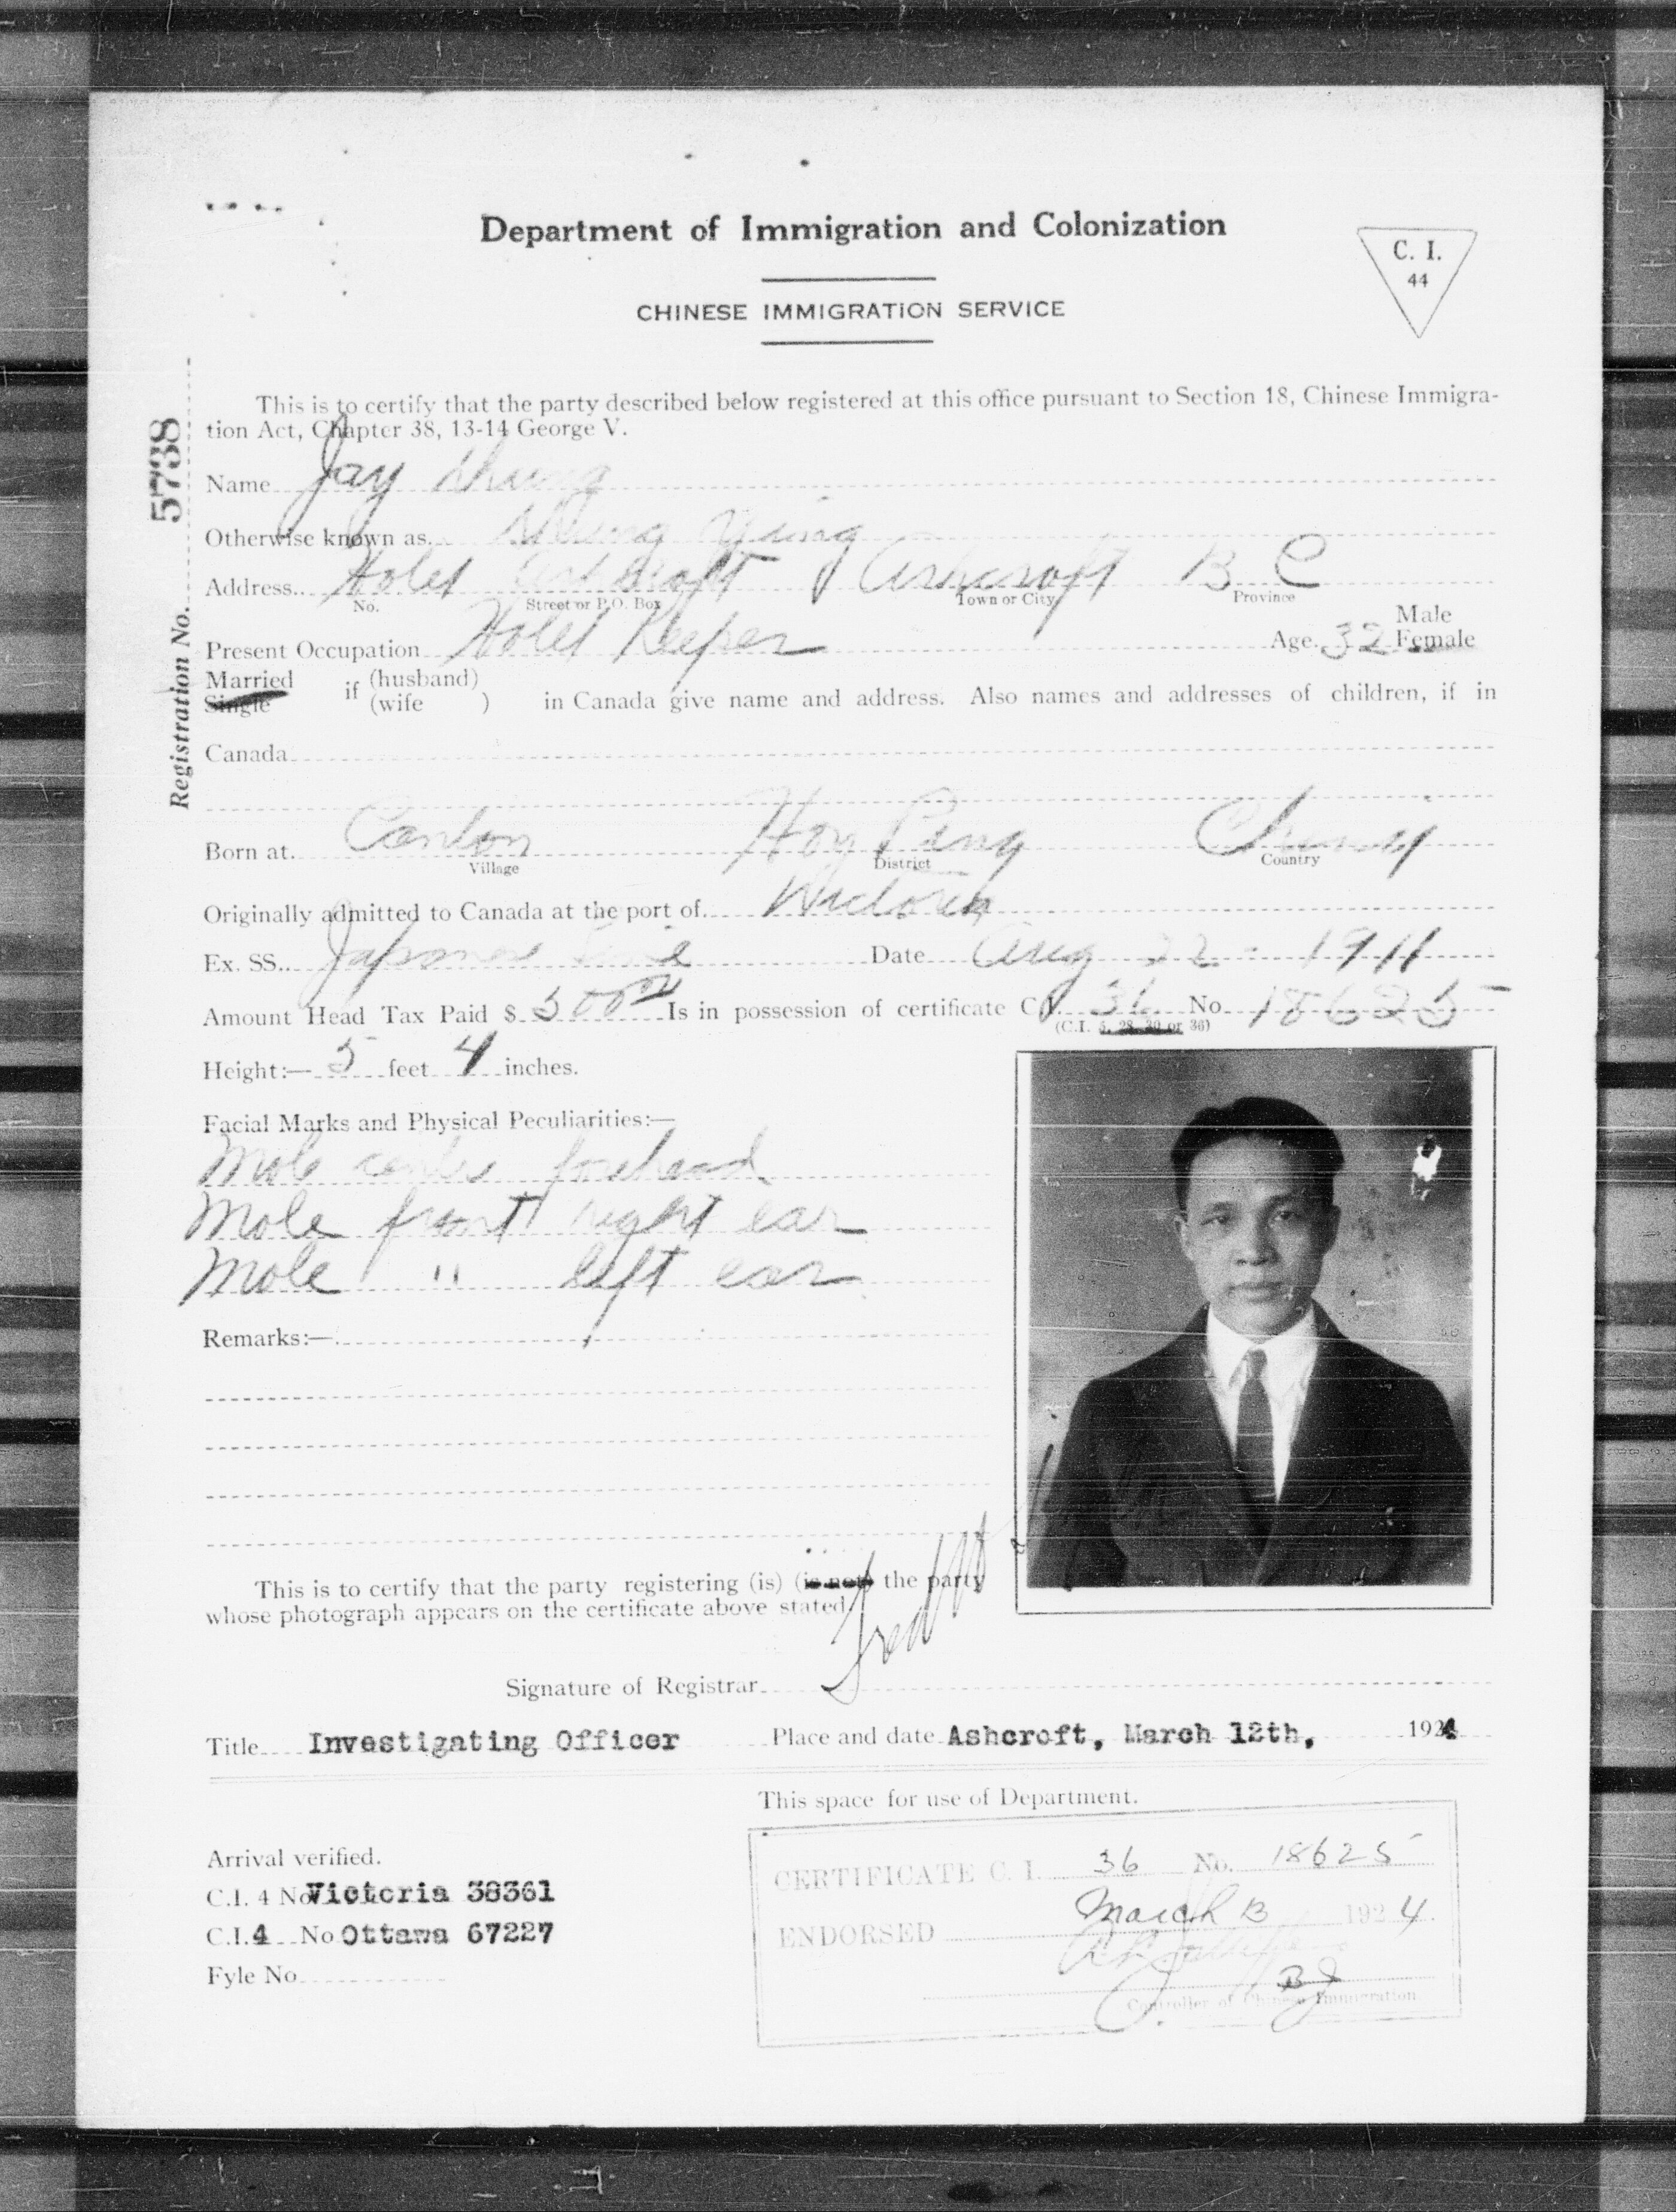 Department of Immigration and Colonization
C. I.
44
CHINESE IMMIGRATION SERVICE
This is to certify that the party described below registered at this office pursuant to Section 18, Chinese Immigra-
tion Act, Chapter 38, 13-14 George V.
Registration No. 5738
Name Jay
Otherwise known as
Address Hotel Ashcroft Ashcroft B C
No. Street or P.O. Box Town or City Province
Male
Present Occupation Hotel Keeper Age 32 Female
Married (husband)
Single if (wife ) in Canada give name and address. Also names and addresses of children, if in
Canada
Born at Canton Hoy Ping China
Village District Country
Originally admitted to Canada at the port of Victoria
Ex. SS. Japanese Date Aug 22 - 1911
Amount Head Tax Paid $ 500 00 Is in possession of certificate C.I. 36 No. 18625
(C.I. 5, 28, 30 or 36)
Height:— 5 feet 4 inches.
Facial Marks and Physical Peculiarities:—
Mole centre forehead
Mole front right ear
Mole " left ear
Remarks:—
This is to certify that the party registering (is) (is not) the party
whose photograph appears on the certificate above stated
Signature of Registrar Fred
Title Investigating Officer Place and date Ashcroft, March 12th, 1924
This space for use of Department.
Arrival verified.
C.I. 4 No Victoria 38361
C.I. 4 No Ottawa 67227
Fyle No
CERTIFICATE C. I. 36 No. 18625
ENDORSED March 13 1924
Controller of Chinese Immigration